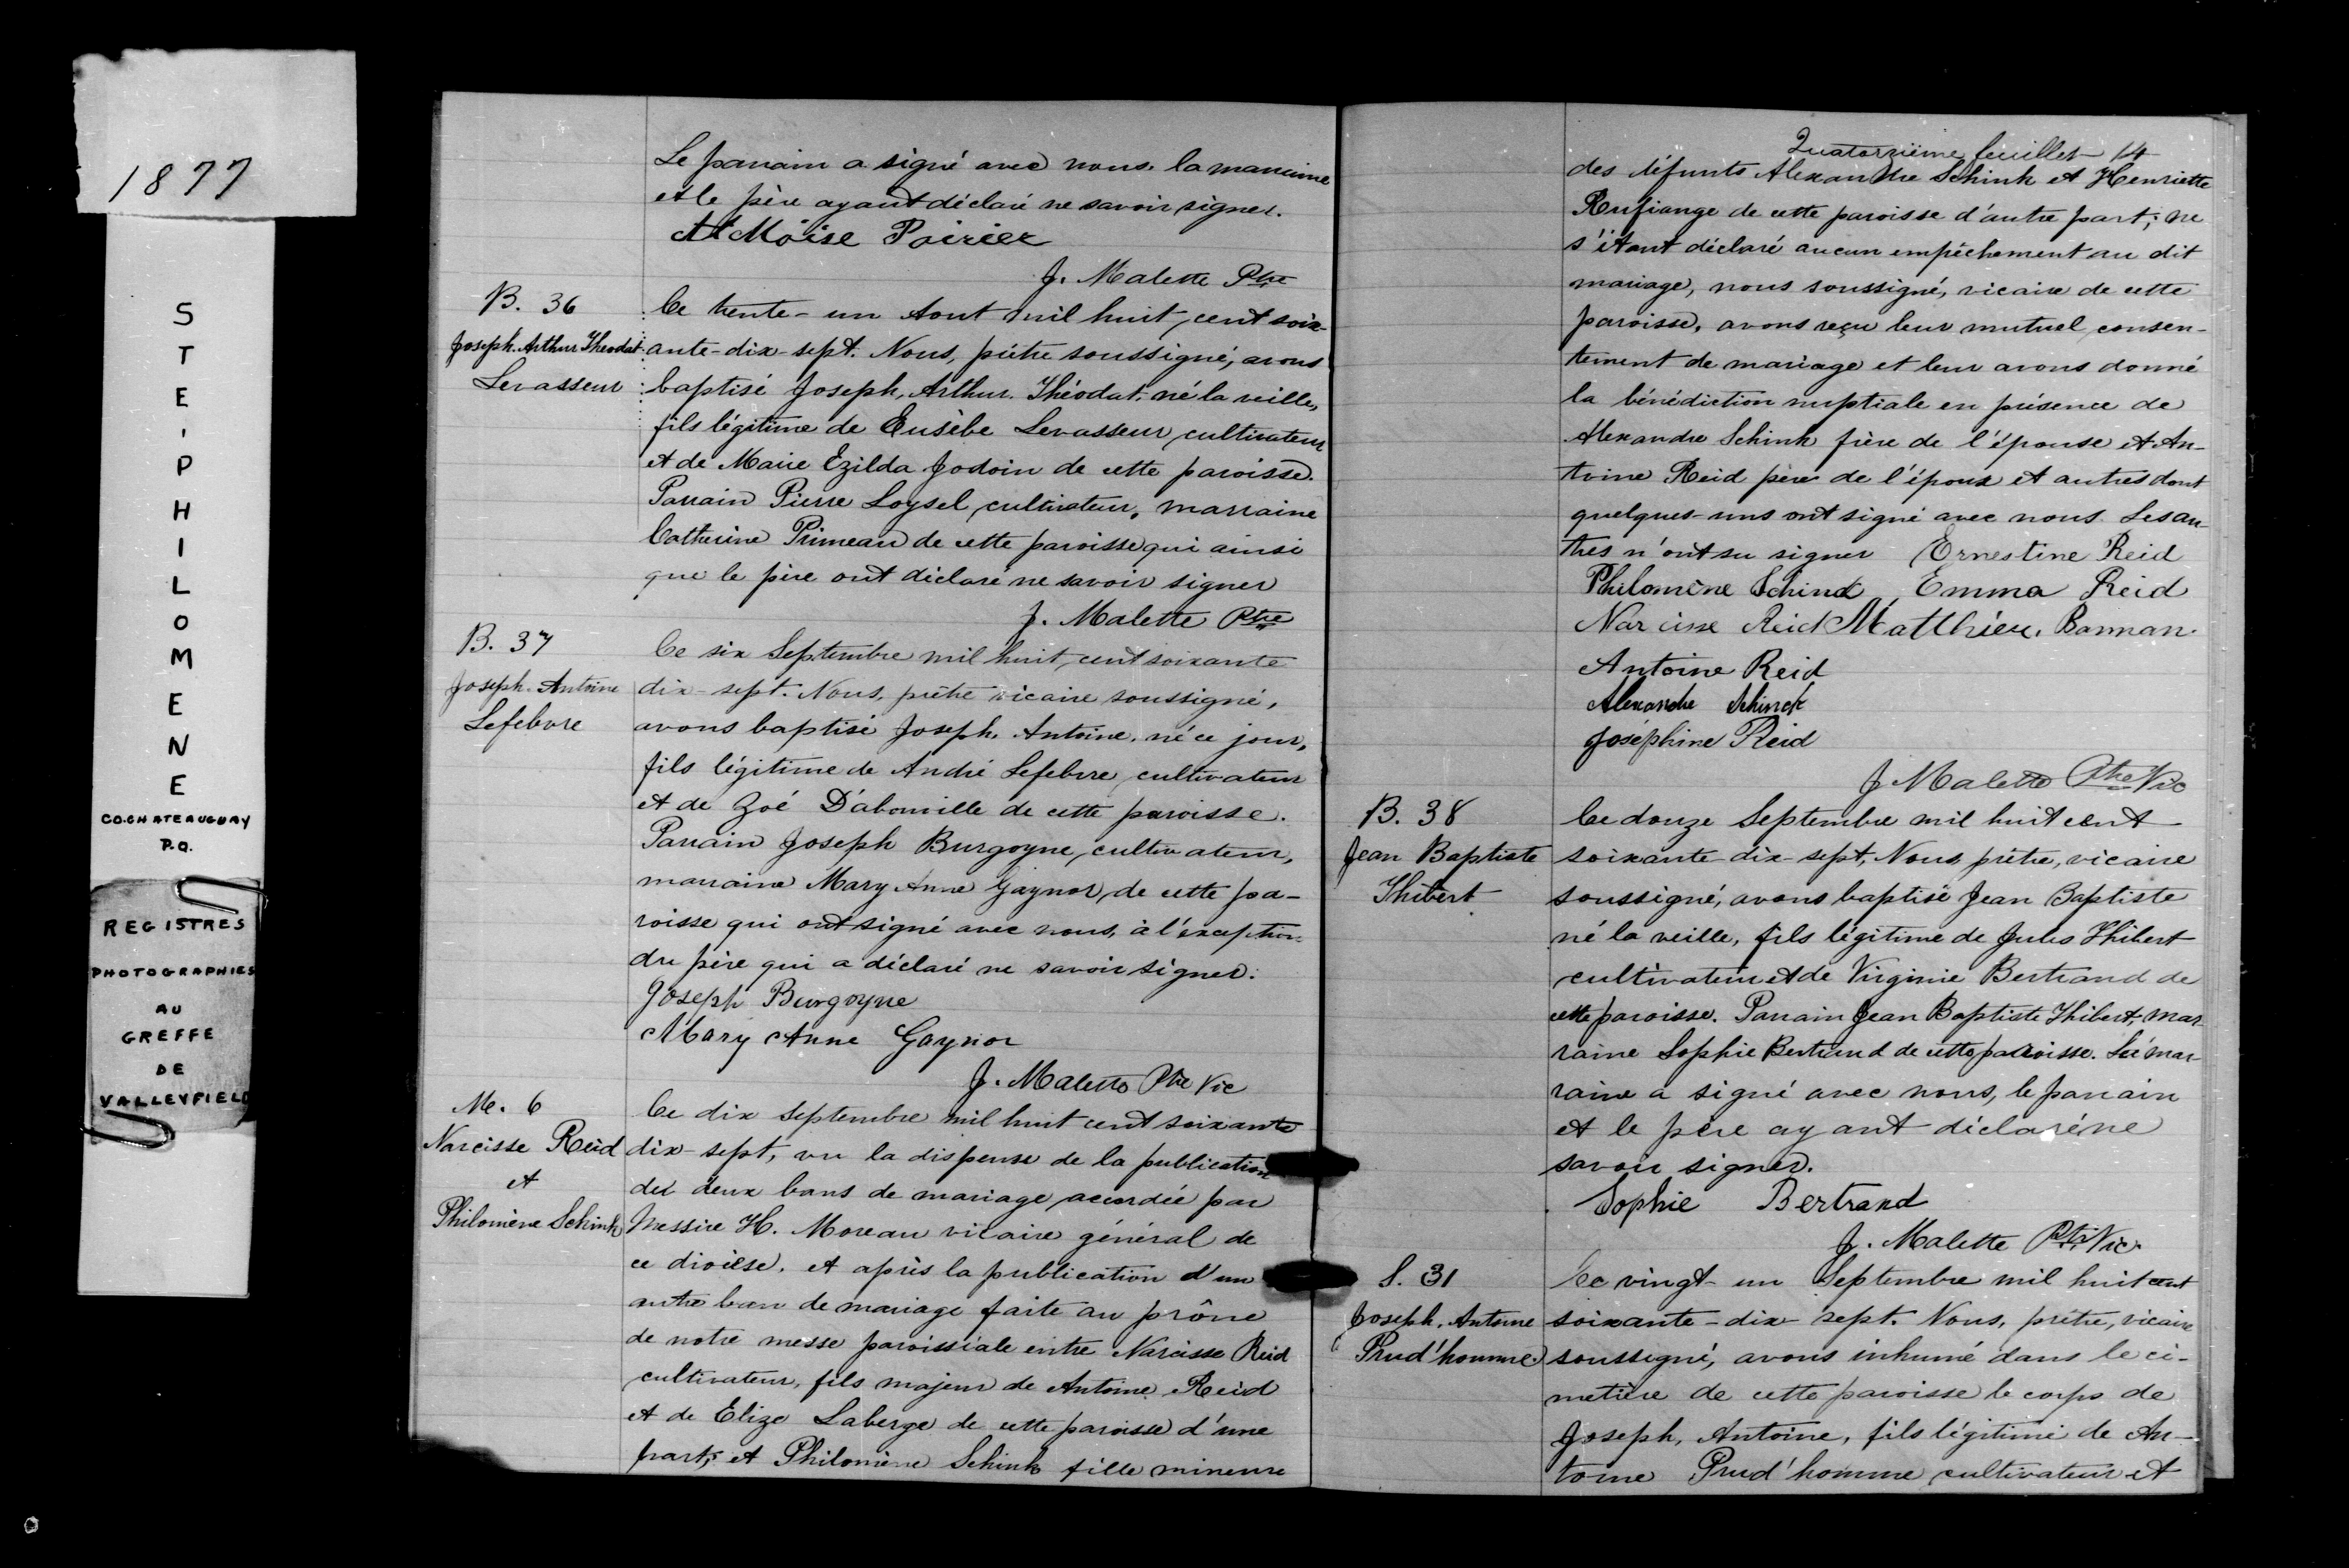 1877
STE-PHILOMENE
CO. CHATEAUGUAY
P.Q.
REGISTRES
PHOTOGRAPHIES
AU
GREFFE
DE
VALLEYFIELD
Le parrain a signé avec nous. la marraine
et le père ayant déclaré ne savoir signer.
Moise Poirier
J. Malette Ptre
B. 36
Joseph. Arthur Theodat
Levasseur
Ce trente-un Aout mil huit cent soix-
ante-dix-sept. Nous, prêtre soussigné, avons
baptisé Joseph, Arthur. Théodat. né la veille,
fils légitime de Eusèbe Levasseur cultivateur
et de Marie Ezilda Jodoin de cette paroisse.
Parrain Pierre Loysel, cultivateur, marraine
Catherine Primeau de cette paroisse qui ainsi
que le père ont déclaré ne savoir signer
J. Malette Ptre
B. 37
Joseph. Antoine
Lefebvre
Ce six Septembre mil huit cent soixante
dix-sept. Nous, prêtre vicaire soussigné,
avons baptisé Joseph. Antoine. né ce jour,
fils légitime de André Lefebvre cultivateur
et de Zoé D'abonville de cette paroisse.
Parrain Joseph Burgoyne, cultivateur,
marraine Mary Anne Gaynor, de cette pa-
roisse qui ont signé avec nous, à l'exception
du père qui a déclaré ne savoir signer.
Joseph Burgoyne
Mary Anne Gaynor
J. Malette Ptre Vic
M. 6
Narcisse Reid
et
Philomène Schink
Ce dix Septembre mil huit cent soixante
dix-sept, vu la dispense de la publication
de deux bans de mariage accordée par
Messire H. Moreau vicaire général de
ce diocèse. et après la publication d'un
autre ban de mariage faite au prône
de notre messe paroissiale entre Narcisse Reid
cultivateur, fils majeur de Antoine Reid
et de Elize Laberge de cette paroisse d'une
part; et Philomène Schink fille mineure
Quatorzième feuillet 14
des défunts Alexandre Schink et Henriette
Rufiange de cette paroisse d'autre part; ne
s'étant déclaré aucun empêchement au dit
mariage, nous soussigné, vicaire de cette
paroisse, avons reçu leur mutuel consen-
tement de mariage et leur avons donné
la bénédiction nuptiale en présence de
Alexandre Schink frère de l'épouse et An-
toine Reid père de l'époux et autres dont
quelques-uns ont signé avec nous. Les au
tres n'ont su signer Ernestine Reid
Philomène Schinck Emma Reid
Narcisse Reid Matthieu. Banman.
Antoine Reid
Alexandre Schinck
Joséphine Reid
J Malette Ptre Vic
B. 38
Jean Baptiste
Thibert
Ce douze Septembre mil huit cent
soixante-dix-sept, Nous, prêtre, vicaire
soussigné, avons baptisé Jean Baptiste
né la veille, fils légitime de Jules Thibert
cultivateur et de Virginie Bertrand de
cette paroisse. Parrain Jean Baptiste Thibert, mar
raine Sophie Bertrand de cette paroisse. La mar
raine a signé avec nous, le parrain
et le père ayant déclaré ne
savoir signer.
Sophie Bertrand
J. Malette Ptre Vic.
S. 31
Joseph. Antoine
Prud'homme
Ce vingt-un Septembre mil huit cent
soixante-dix-sept. Nous, prêtre, vicaire
soussigné, avons inhumé dans le ci-
metière de cette paroisse le corps de
Joseph, Antoine, fils légitime de An-
toine Prud'homme cultivateur et